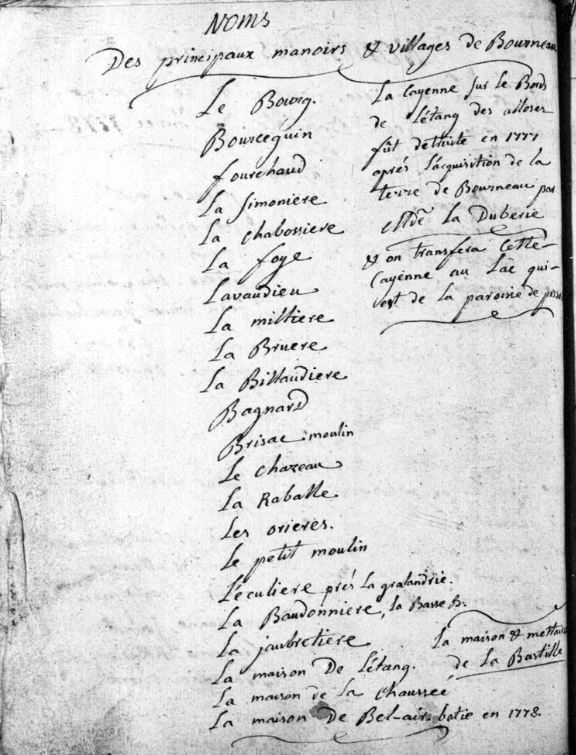 Noms
Des principaux manoirs & villages de Bourneau
Le Bourg.
Bourcequin
fourchaud
La Simoniere
La chabossiere
La foye
Lavaudieu
La miltiere
La Bruere
La Billaudiere
Bagnard
Brisac moulin
Le chazeau
La Raballe
Les orieres.
Le petit moulin
L'éculiere prés La gralandrie.
La Baudonniere, la Basse B.
La jaubretiere
La maison De L'étang.
La maison de La Chaussée
La maison De Bel-air batie en 1778.
La Cayenne sur le Bords
de L'étang des alloser
fût detruite en 1777
aprés l'acquisition de la
terre de Bourneau par
La Duberie
& on transfera Cette
Cayenne au Lac qui
est de la paroisse de
La maison & mettairie
de La Bastille